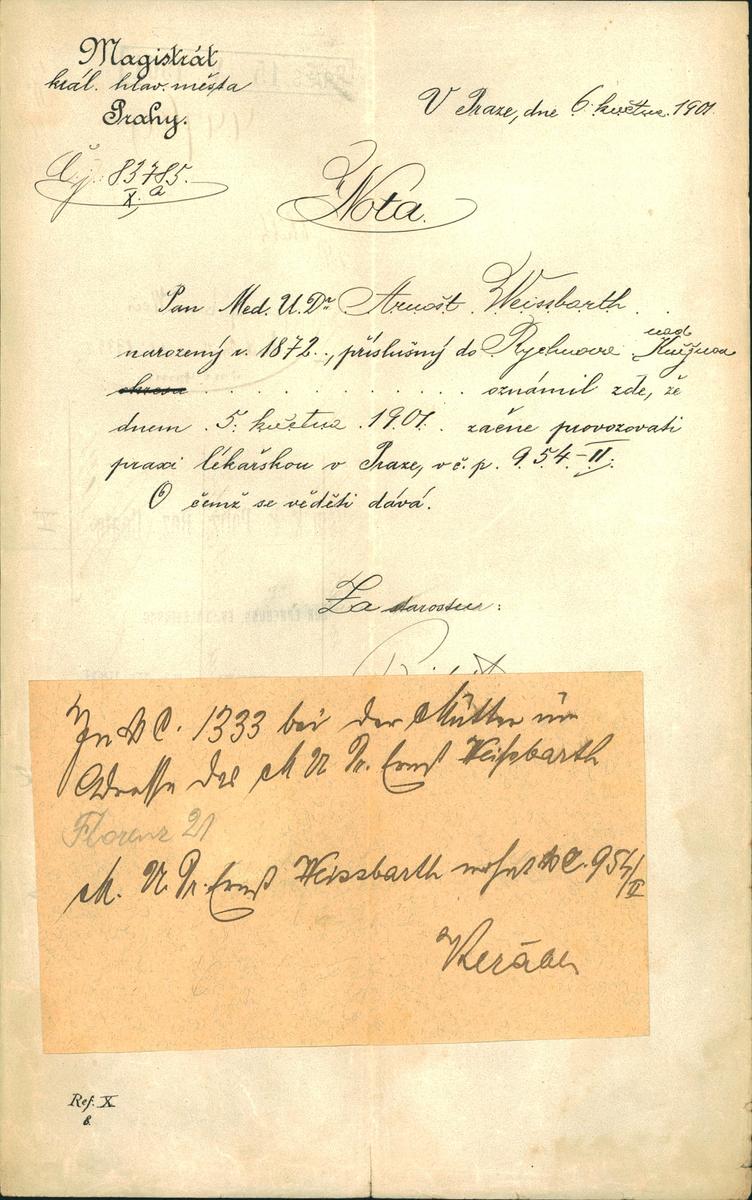 Magistrát
král. hlav. města
Prahy.
V Praze, dne 6. května 1901.
Č. j. 83785.
X. a
Nota.
Pan Med. U. Dr. Arnošt Weissbarth
narozený r. 1872., příslušný do Rychnova nad
okresu . . . . oznámil zde, že
dnem 5. května 1901. začne provozovati
praxi lékařskou v Praze, v č. p. 954-II.
O čemž se věděti dává.
Za starostu:
In N C. 1333 bei der Mutter
Adresse des M U Dr. Ernst Weißbarth
Florenz 21
M. U. Dr. Ernst Weissbarth wohnt N C. 954/II
Ref. X